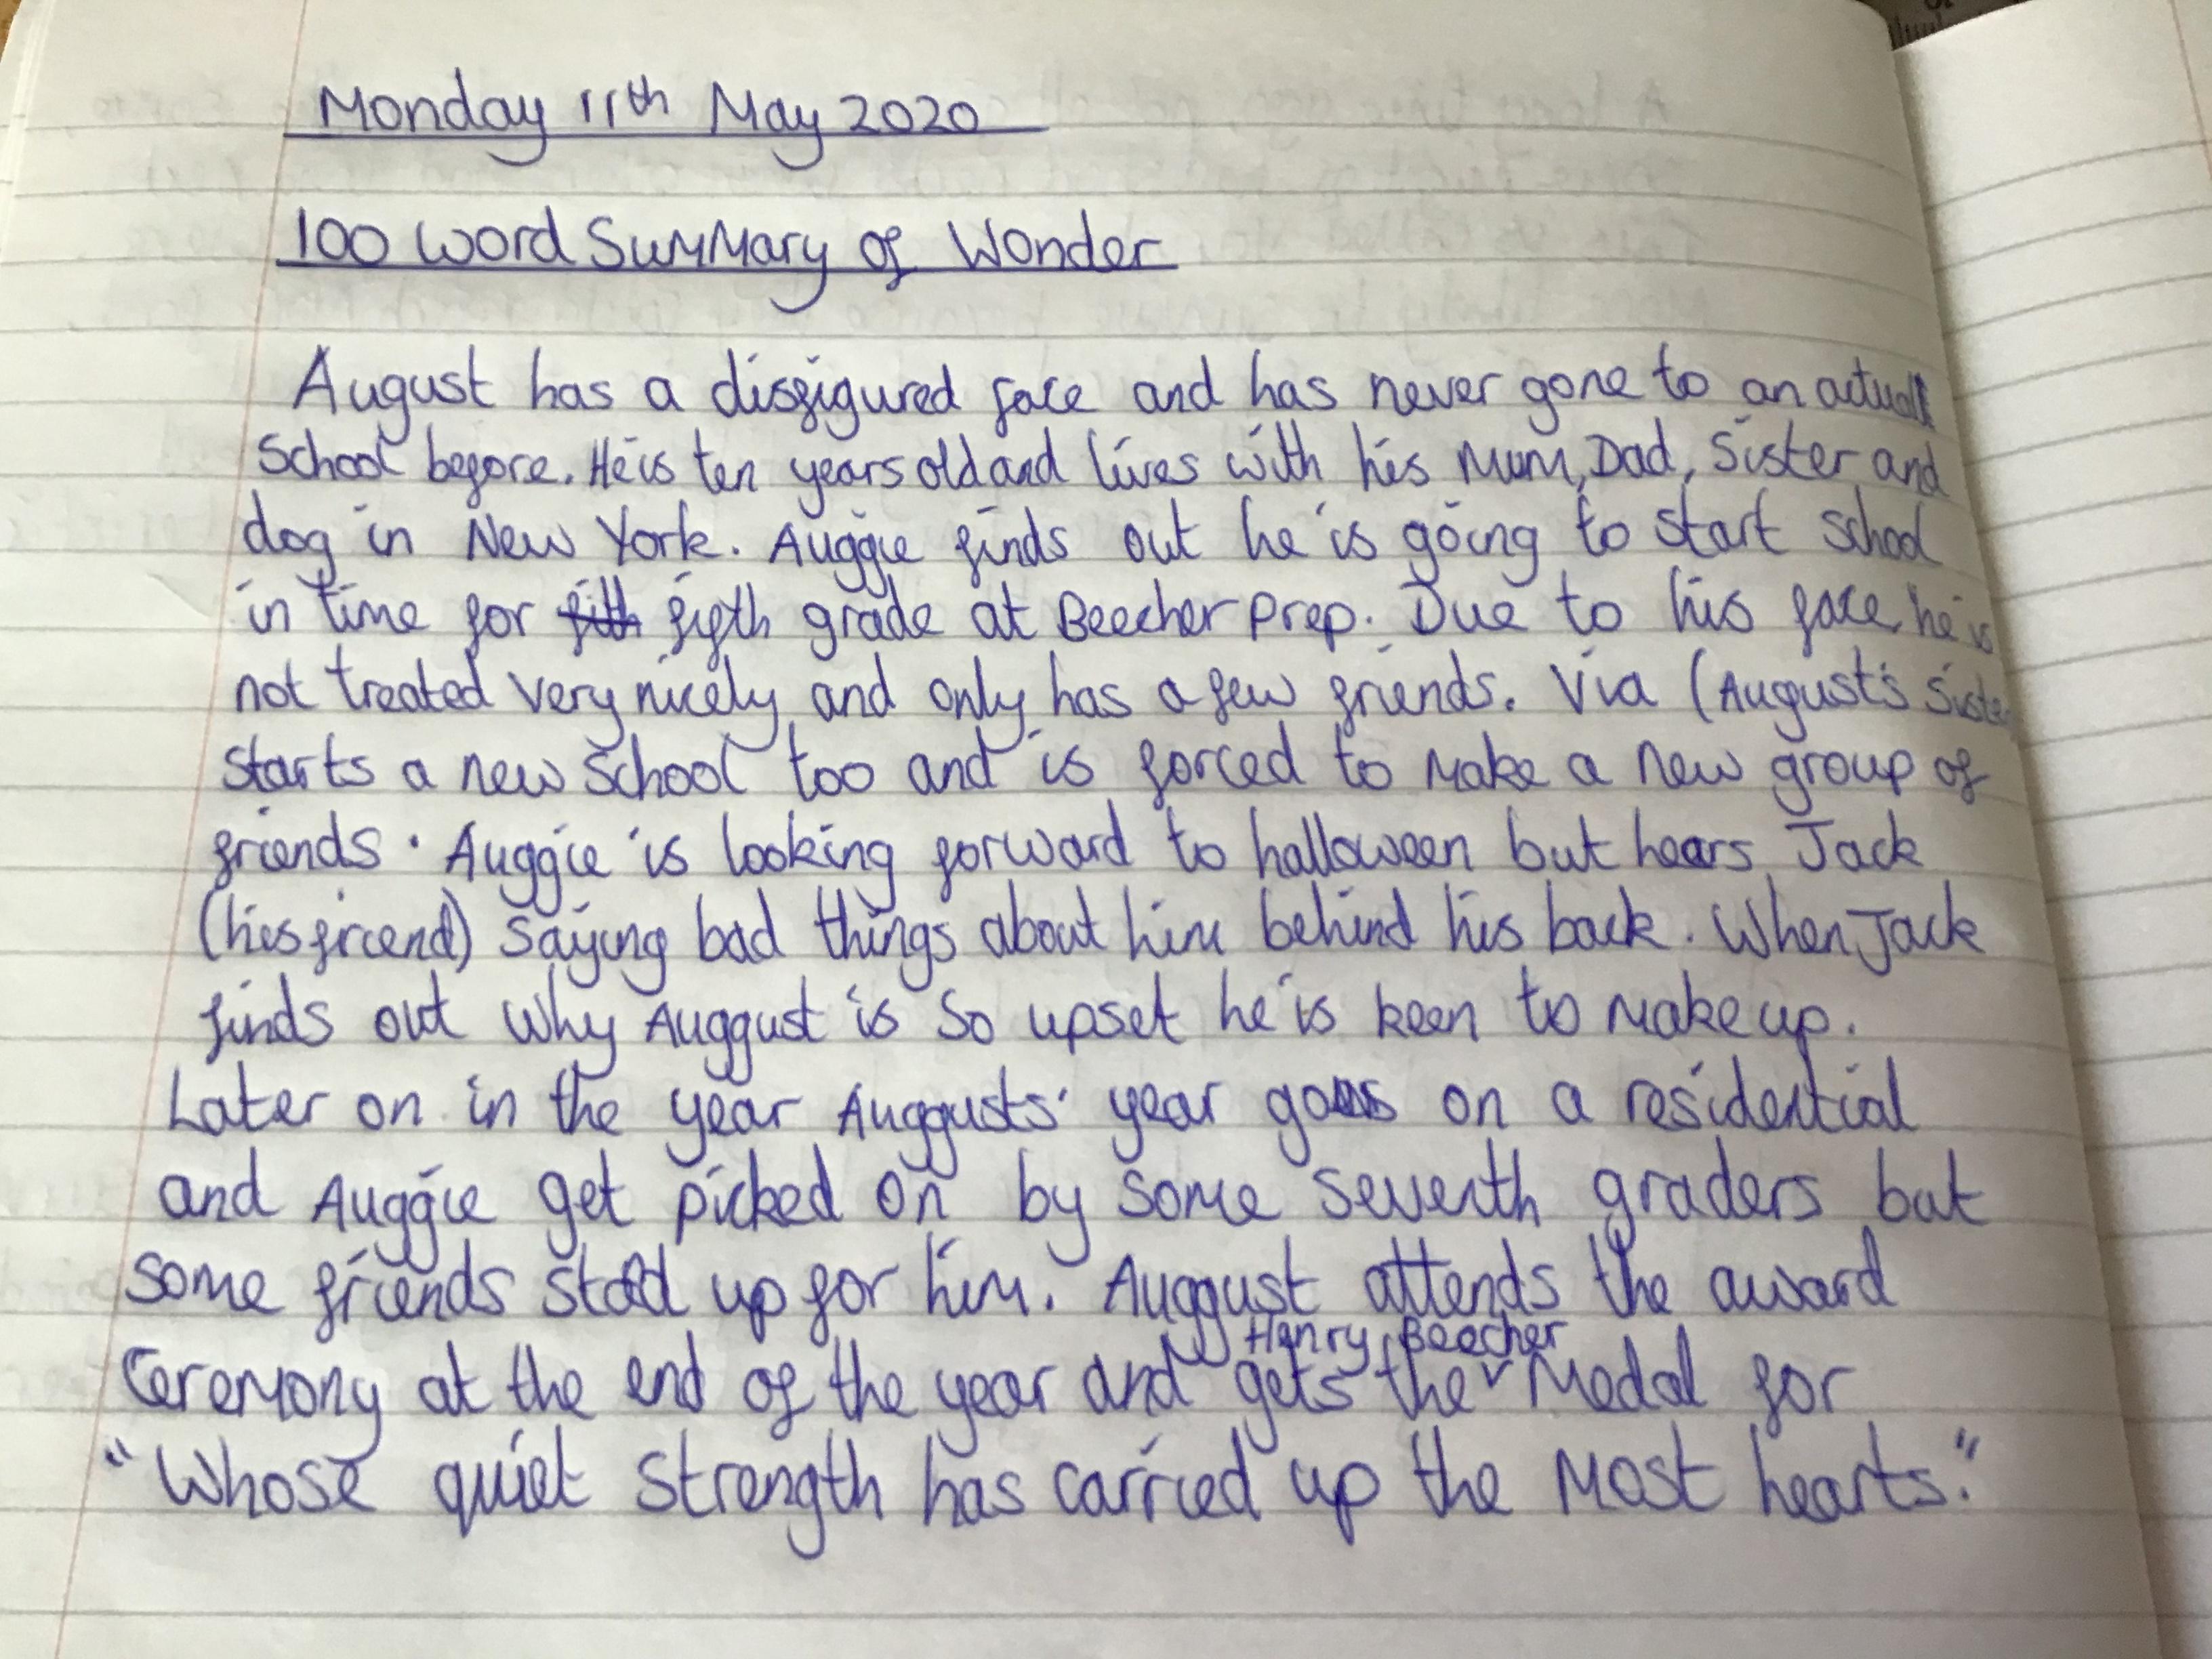 Monday 11th May 2020
100 word Summary of Wonder
August has a disfigured face and has never gone to an actual
School before. He is ten years old and lives with his Mum, Dad, Sister and
dog in New York. Auggie finds out he is going to start school
in time for fith fifth grade at Beecher Prep. Due to his face, he is
not treated very nicely and only has a few friends. Via (August's Sister
starts a new school too and is forced to make a new group of
friends. Auggie is looking forward to halloween but hears Jack
(his friend) saying bad things about him behind his back. When Jack
finds out why Auggust is so upset he is keen to make up.
Later on in the year Auggusts' year goes on a residential
and Auggie get picked on by some seventh graders but
some friends stood up for him. Auggust attends the award
Henry Beecher
Ceremony at the end of the year and gets the Medal for
"Whose quiet strength has carried up the most hearts."